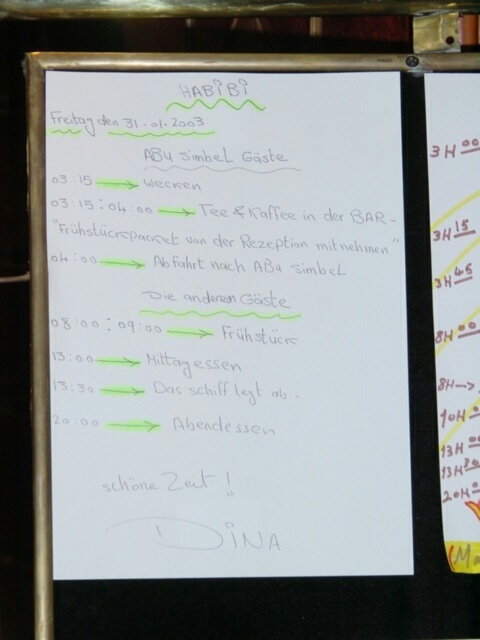 HABIBI
Freitag den 31-01-2003
ABU Simbel Gäste
03:15 → Wecken
03:15 : 04:00 → Tee & Kaffee in der BAR -
"Frühstückspacket von der Rezeption mitnehmen"
04:00 → Abfahrt nach ABU Simbel
Die anderen Gäste
08:00 : 09:00 → Frühstück
13:00 → Mittagessen
13:30 → Das schiff legt ab.
20:00 → Abendessen
schöne Zeit !
DiNA
3H 00
3H 15
3H 45
8H 00
8H →
10H
13H 00
13H 30
20H